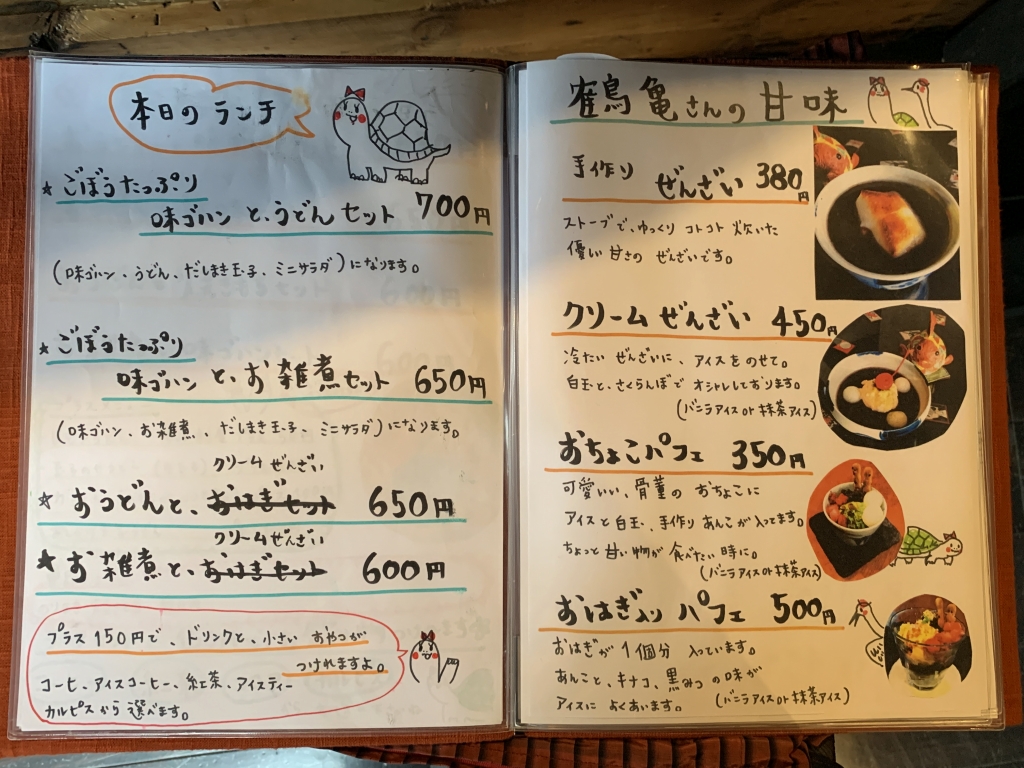 本日のランチ
★ごぼうたっぷり
味ゴハンと、うどんセット 700円
(味ゴハン、うどん、だしまき玉子、ミニサラダ)になります。
★ごぼうたっぷり
味ゴハンと、お雑煮セット 650円
(味ゴハン、お雑煮、だしまき玉子、ミニサラダ)になります。
クリームぜんざい
★おうどんと、おはぎセット 650円
クリームぜんざい
★お雑煮と、おはぎセット 600円
プラス150円で、ドリンクと、小さいおやつが
つけれますよ。
コーヒ、アイスコーヒー、紅茶、アイスティー
カルピスから選べます。
鶴亀さんの甘味
手作りぜんざい 380円
ストーブで、ゆっくりコトコト炊いた
優しい甘さのぜんざいです。
クリームぜんざい 450円
冷たいぜんざいに、アイスをのせて。
白玉と、さくらんぼでオシャレしております。
(バニラアイスor抹茶アイス)
おちょこパフェ 350円
可愛いい、骨董のおちょこに
アイスと白玉、手作りあんこが入ってます。
ちょっと甘い物が食べたい時に。
(バニラアイスor抹茶アイス)
おはぎ入りパフェ 500円
おはぎが1個分入っています。
あんこと、キナコ、黒みつの味が
アイスによくあいます。
(バニラアイスor抹茶アイス)